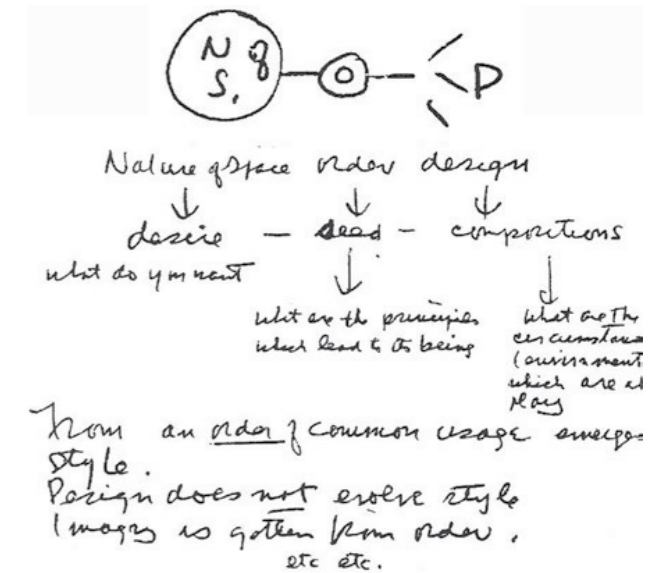 N of
S. O D
Nature of Space order design
desire — seed — compositions
what do you want
what are the principles
which lead to its being
What are the
circumstance
(environment
which are at
play
From an order of common usage emerges
style.
Design does not evolve style
Imagry is gotten from order.
etc etc.